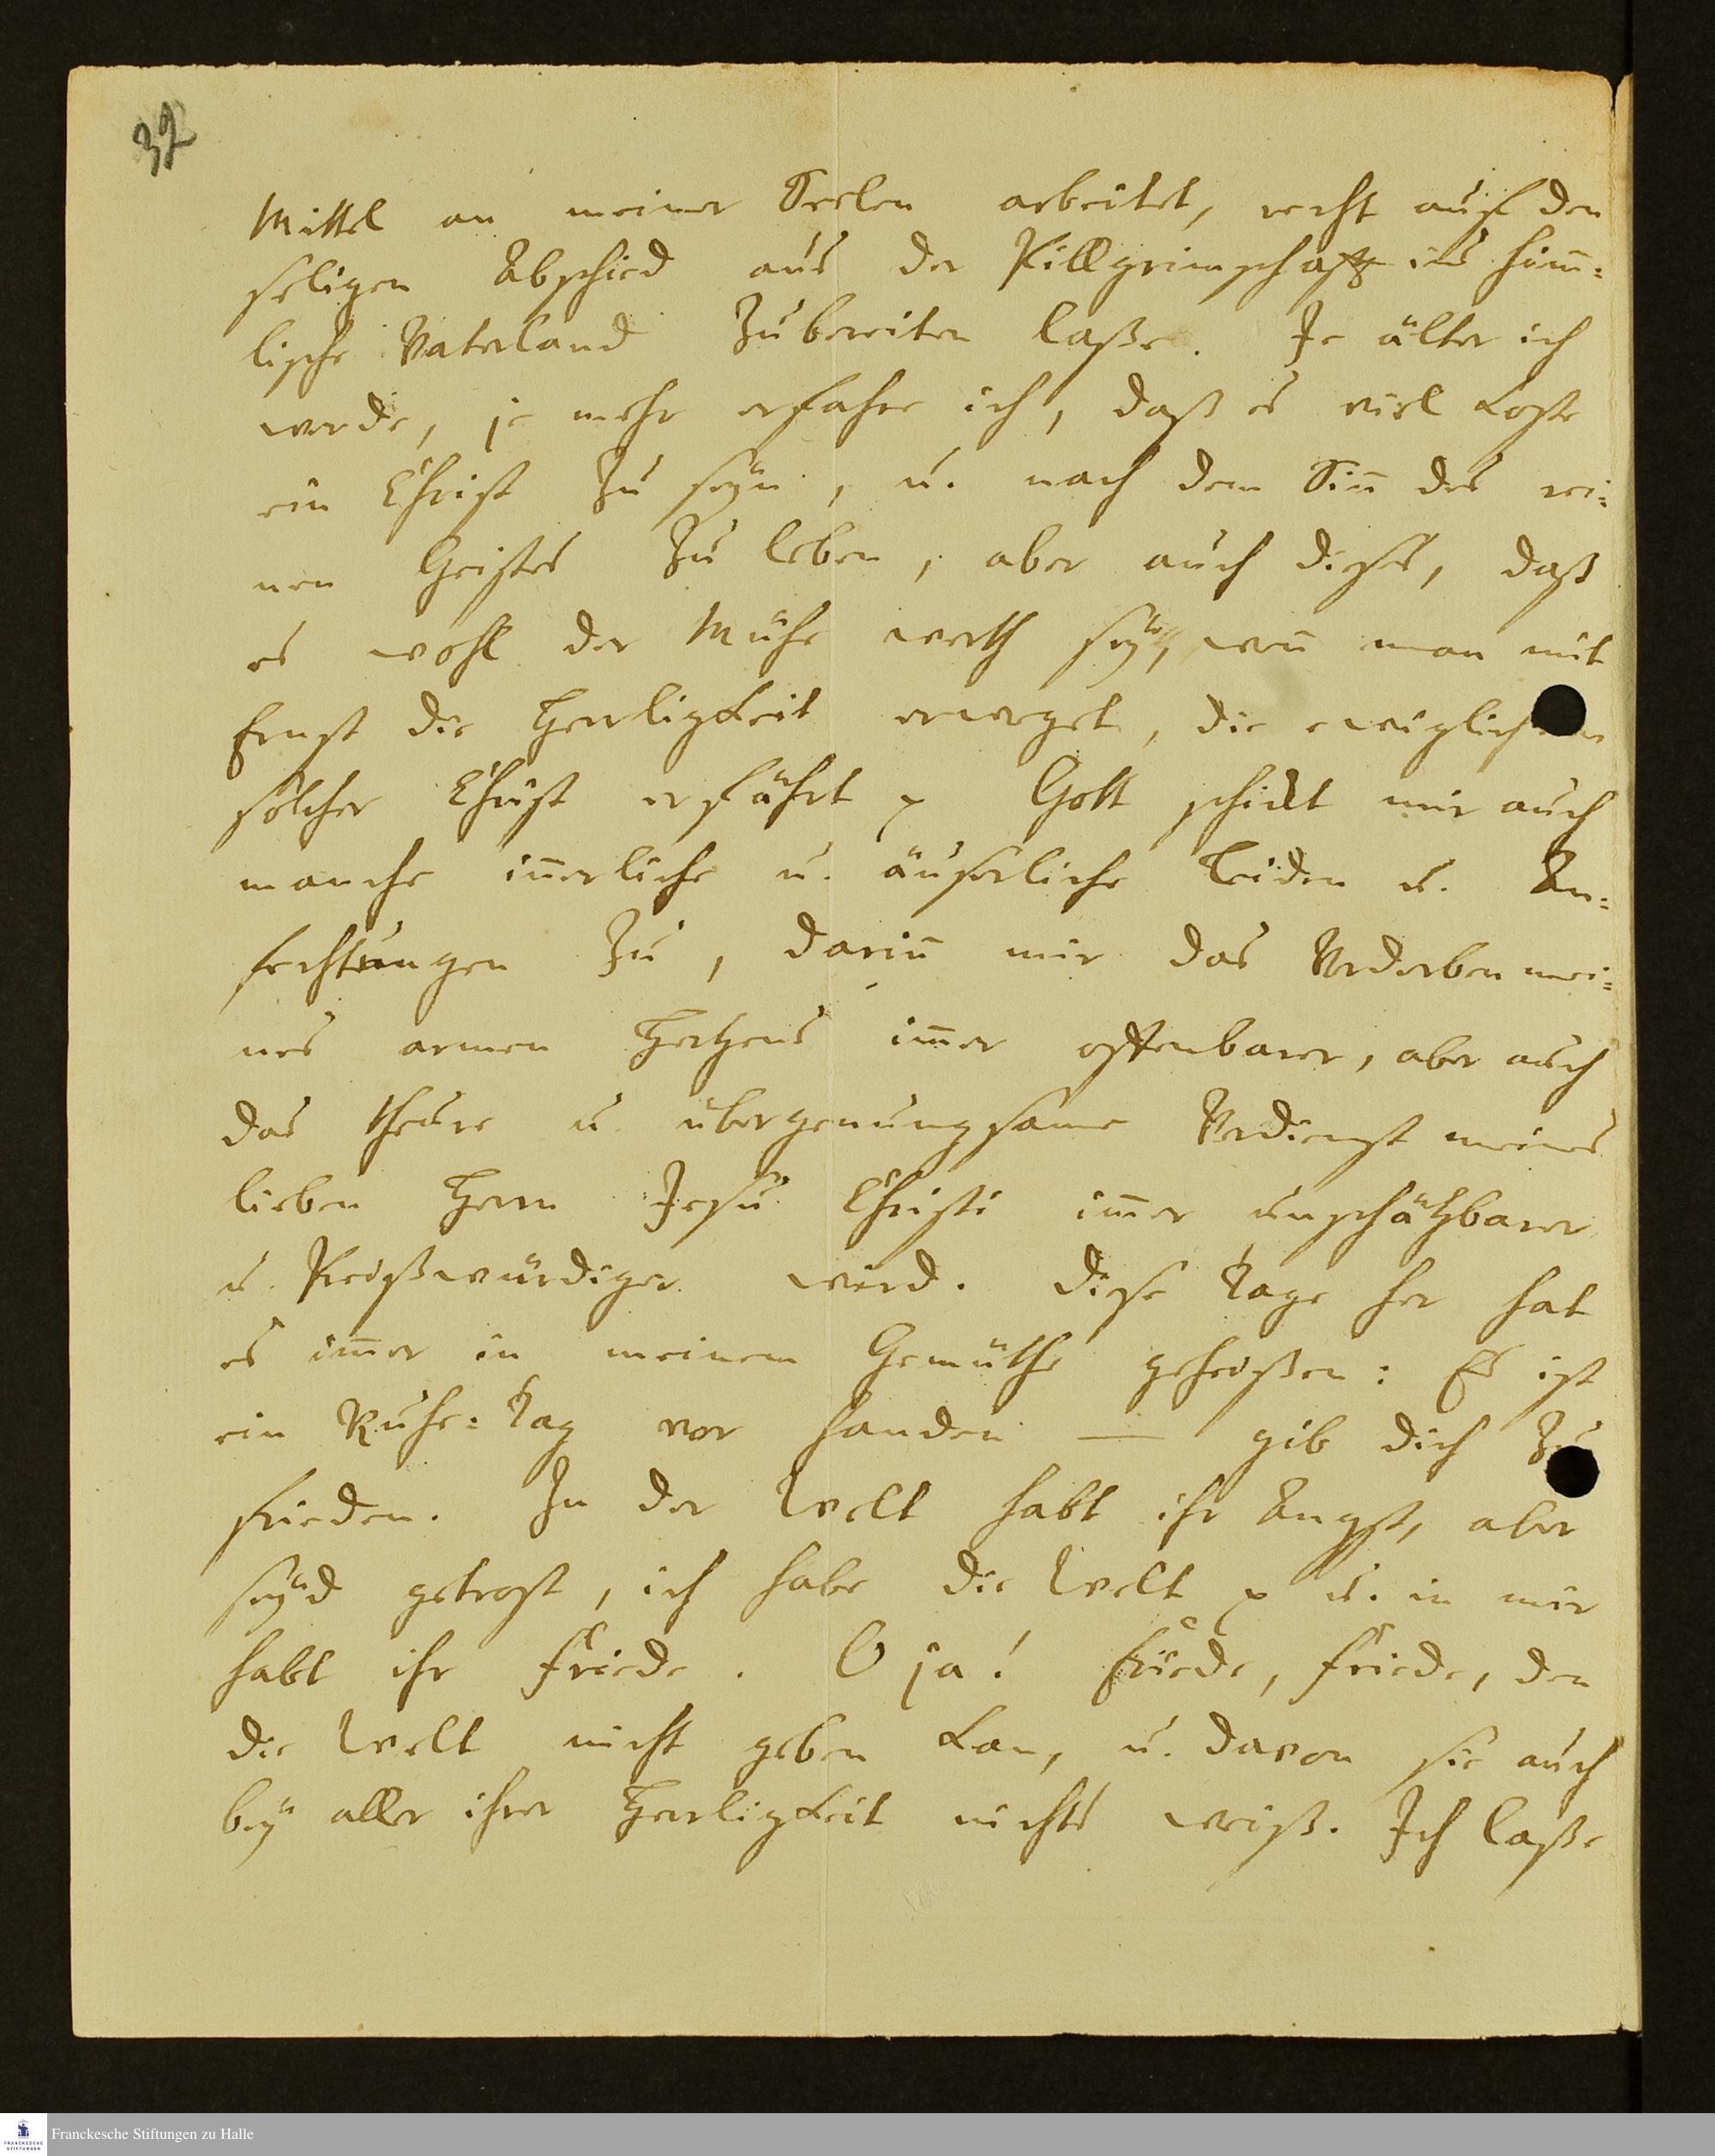 32
Mittel an meiner Seelen arbeitet, recht auf den
seligen Abschied aus der Pillgrimschafft ins him̄-
lische Vaterland zubereiten laße. Je älter ich
werde, je mehr erfahre ich, daß es viel koste
ein Christ zu seÿn, u. nach dem Sin̄ des rei-
nen Geistes zu leben, aber auch dieses, daß
es wohl der Mühe werth seÿ, wen̄ man mit
Ernst die Herrligkeit erweget, die ewiglich ein
solcher Christ erfährt p Gott schickt mir auch
manche in̄erliche u. äuserliche Leiden u. An-
fechtungen zu, darin̄ mir das Verderben mei-
nes armen Hertzens im̄er offenbarer, aber auch
das theure u. übergenungsame Verdienst meines
lieben Herrn Jesu Christi im̄er unschätzbarer
u. Preißwürdiger wird. Diese Tage her hat
es im̄er in meinem Gemüthe geheißen: Es ist
ein Ruhe-Tag vor handen — gib dich zu
frieden. In der Welt habt ihr Angst, aber
seÿd getrost, ich habe die Welt p u. in mir
habt ihr Friede. O ja! Friede, Friede, den
die Welt nicht geben kan, u. davon sie auch
beÿ aller ihrer Herrligkeit nichts weiß. Ich laße
Franckesche Stiftungen zu Halle